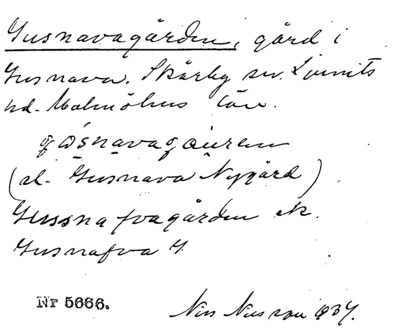 Gusnavagården, gård i
Gusnava, Skårby sn. Ljunits
hd. Malmöhus län.
(al. Gusnava Nygård)
Gussnafvagården ek.
Gusnafva
Nr 5666.
Nils Nilsson